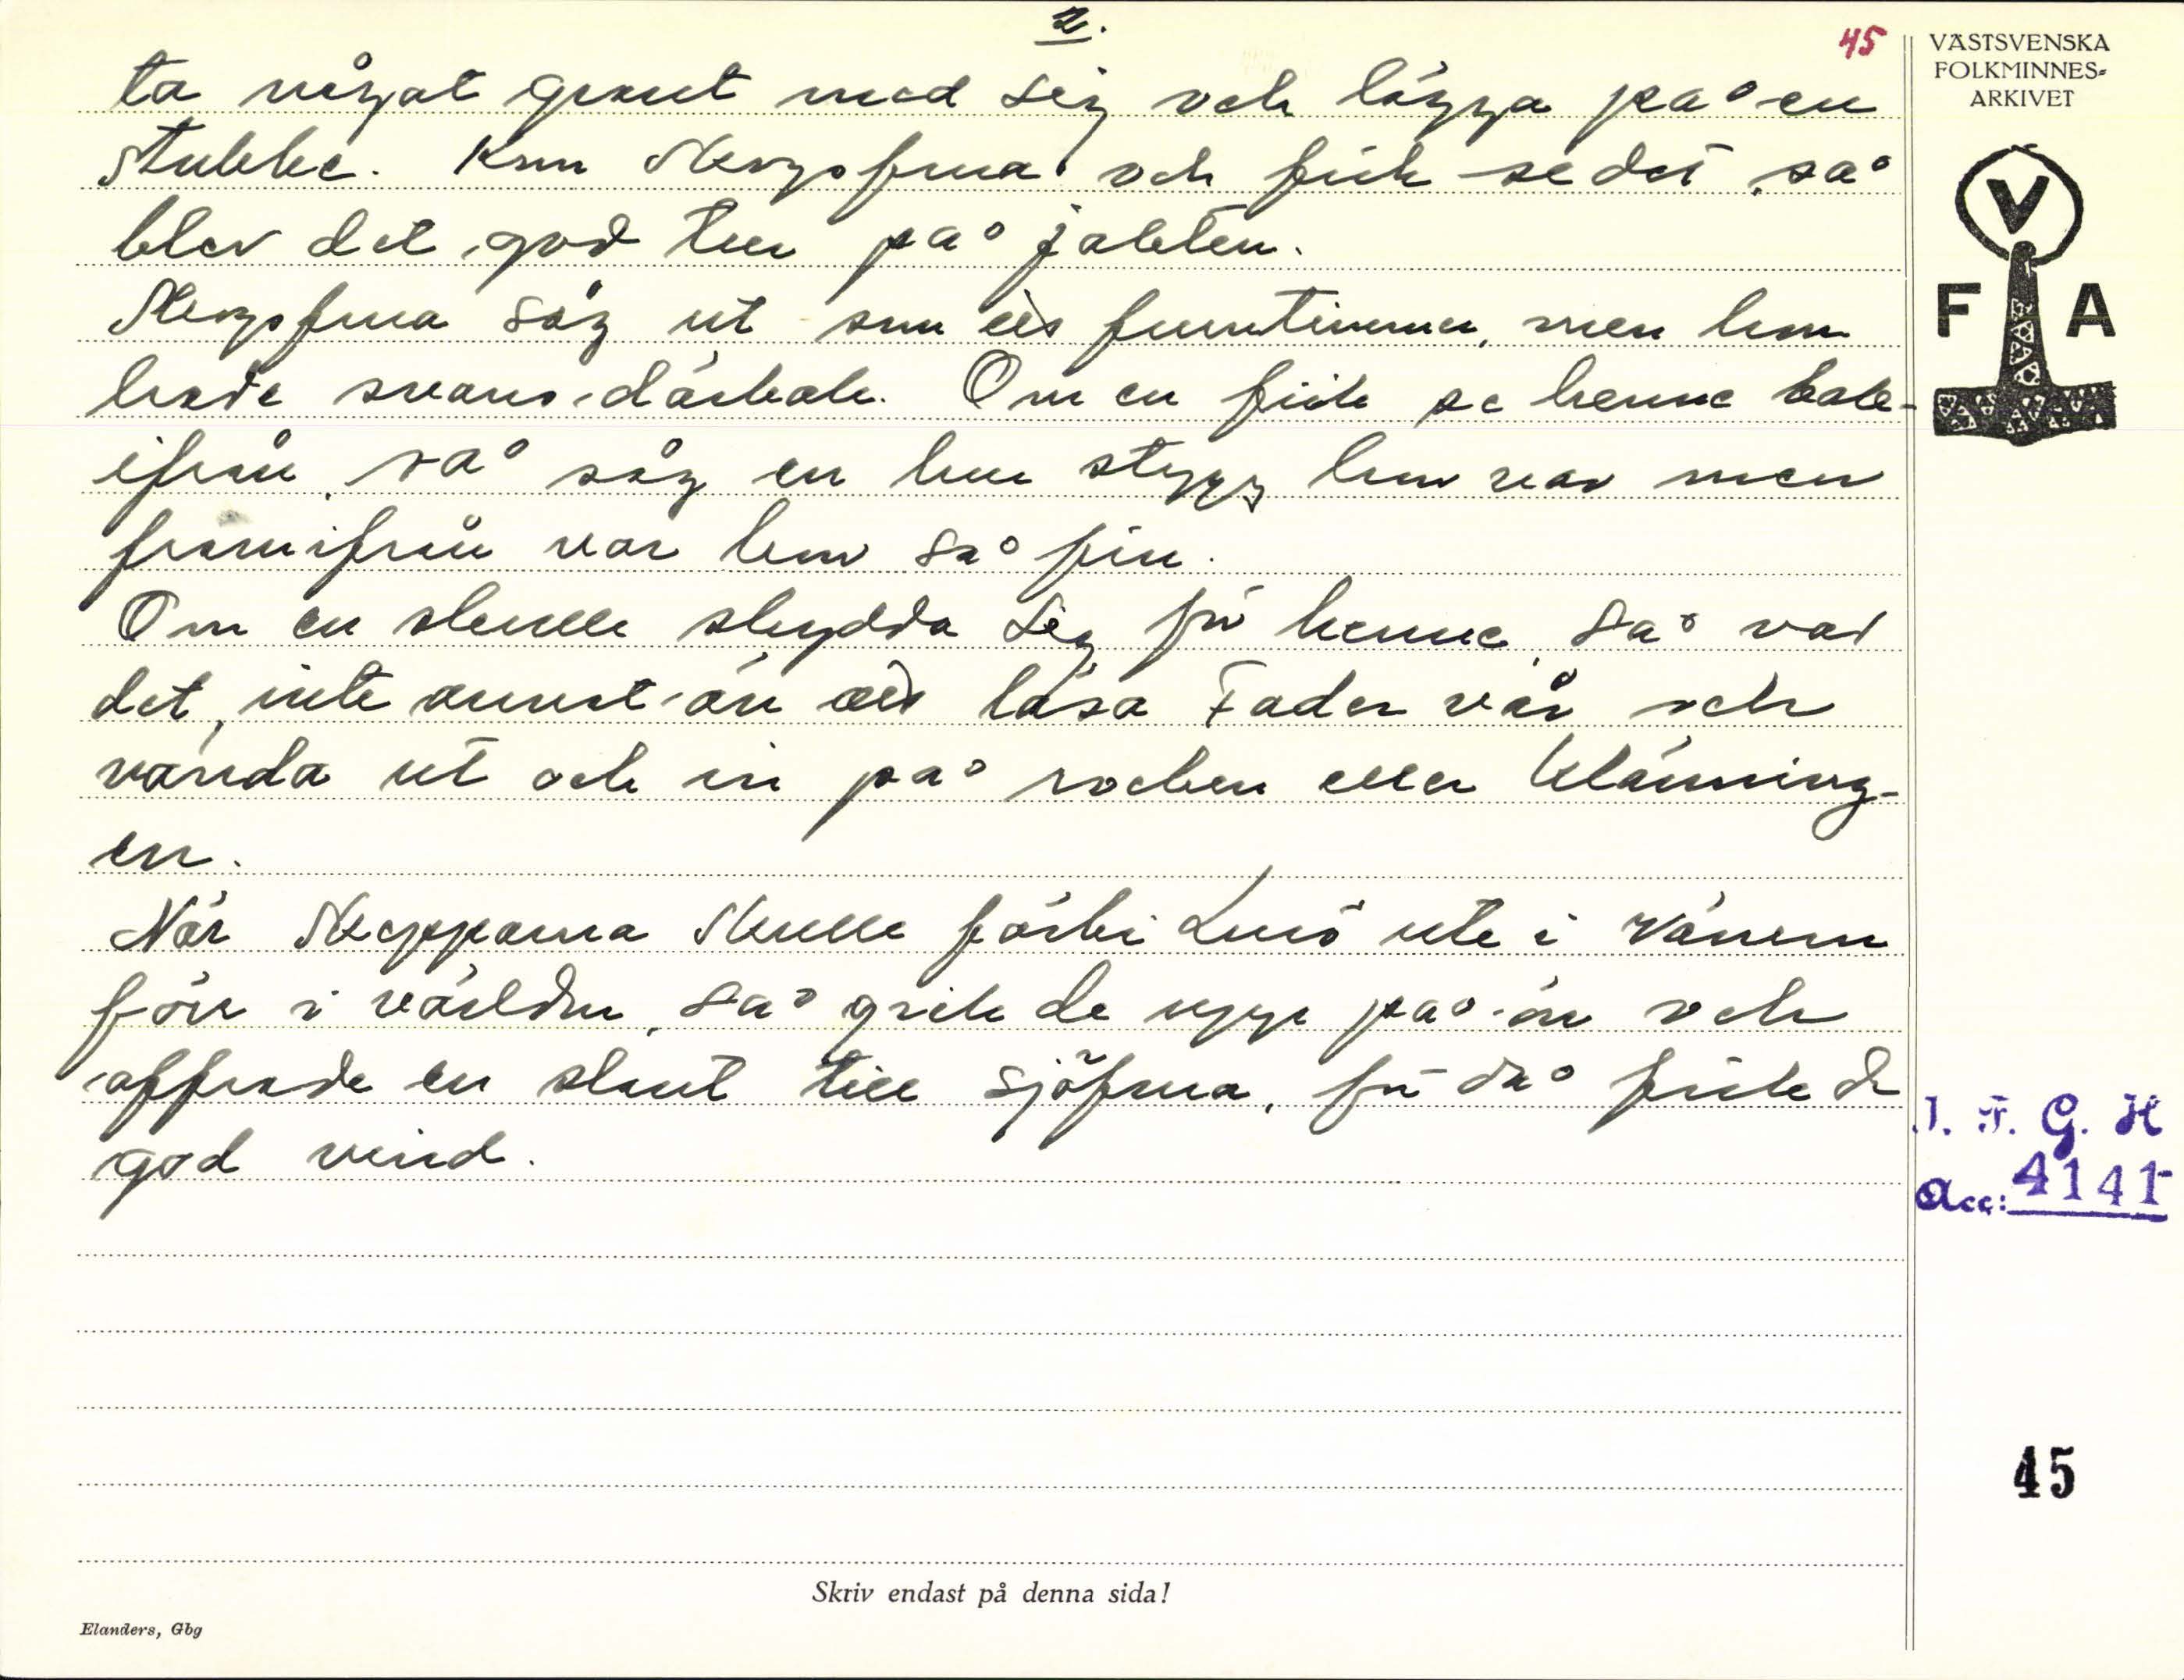 2.
45
VÄSTSVENSKA
FOLKMINNES-
ARKIVET
V
F A
ta något grant med sig och lägga på en
stubbe. Kom Skogsfrua och fick se det, så
blev det god tur på jakten.
Skogsfrua såg ut som ett fruntimmer, men hon
hade svans därbak. Om en fick se henne bak-
ifrån, så såg en hur stygg hon var men
framifrån var hon så fin.
Om en skulle skydda sig för henne, så var
det inte annat än att läsa Fader vår och
vända ut och in på rocken eller klänning-
en.
När Skepparna skulle förbi Lurö ute i Vänern
förr i världen, så gick de upp på ön och
offrade en slant till Sjöfrua, för då fick de
god vind.
I. F. G. H
Acc: 4141
45
Skriv endast på denna sida!
Elanders, Gbg